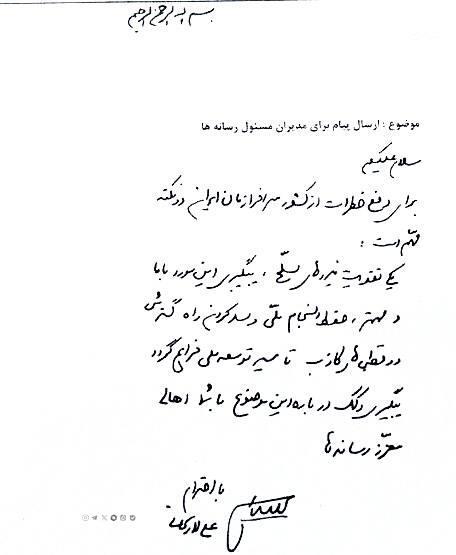 بسم الله الرحمن الرحیم
موضوع : ارسال پیام برای مدیران مسئول رسانه ها
سلام علیکم
برای رفع خطرات از کشور سرافرازمان ایران دو نکته
مهم است :
یکی تقویت نیروهای مسلح ، پیگیری این مورد با ما
و مهمتر ، حفظ انسجام ملّی و سد کردن راه گسترش
دو قطبی های کاذب تا مسیر توسعه ملی فراهم گردد
پیگیری و کمک در باره این موضوع با شما اهالی
معزّز رسانه ها
با احترام
علی لاریجانی